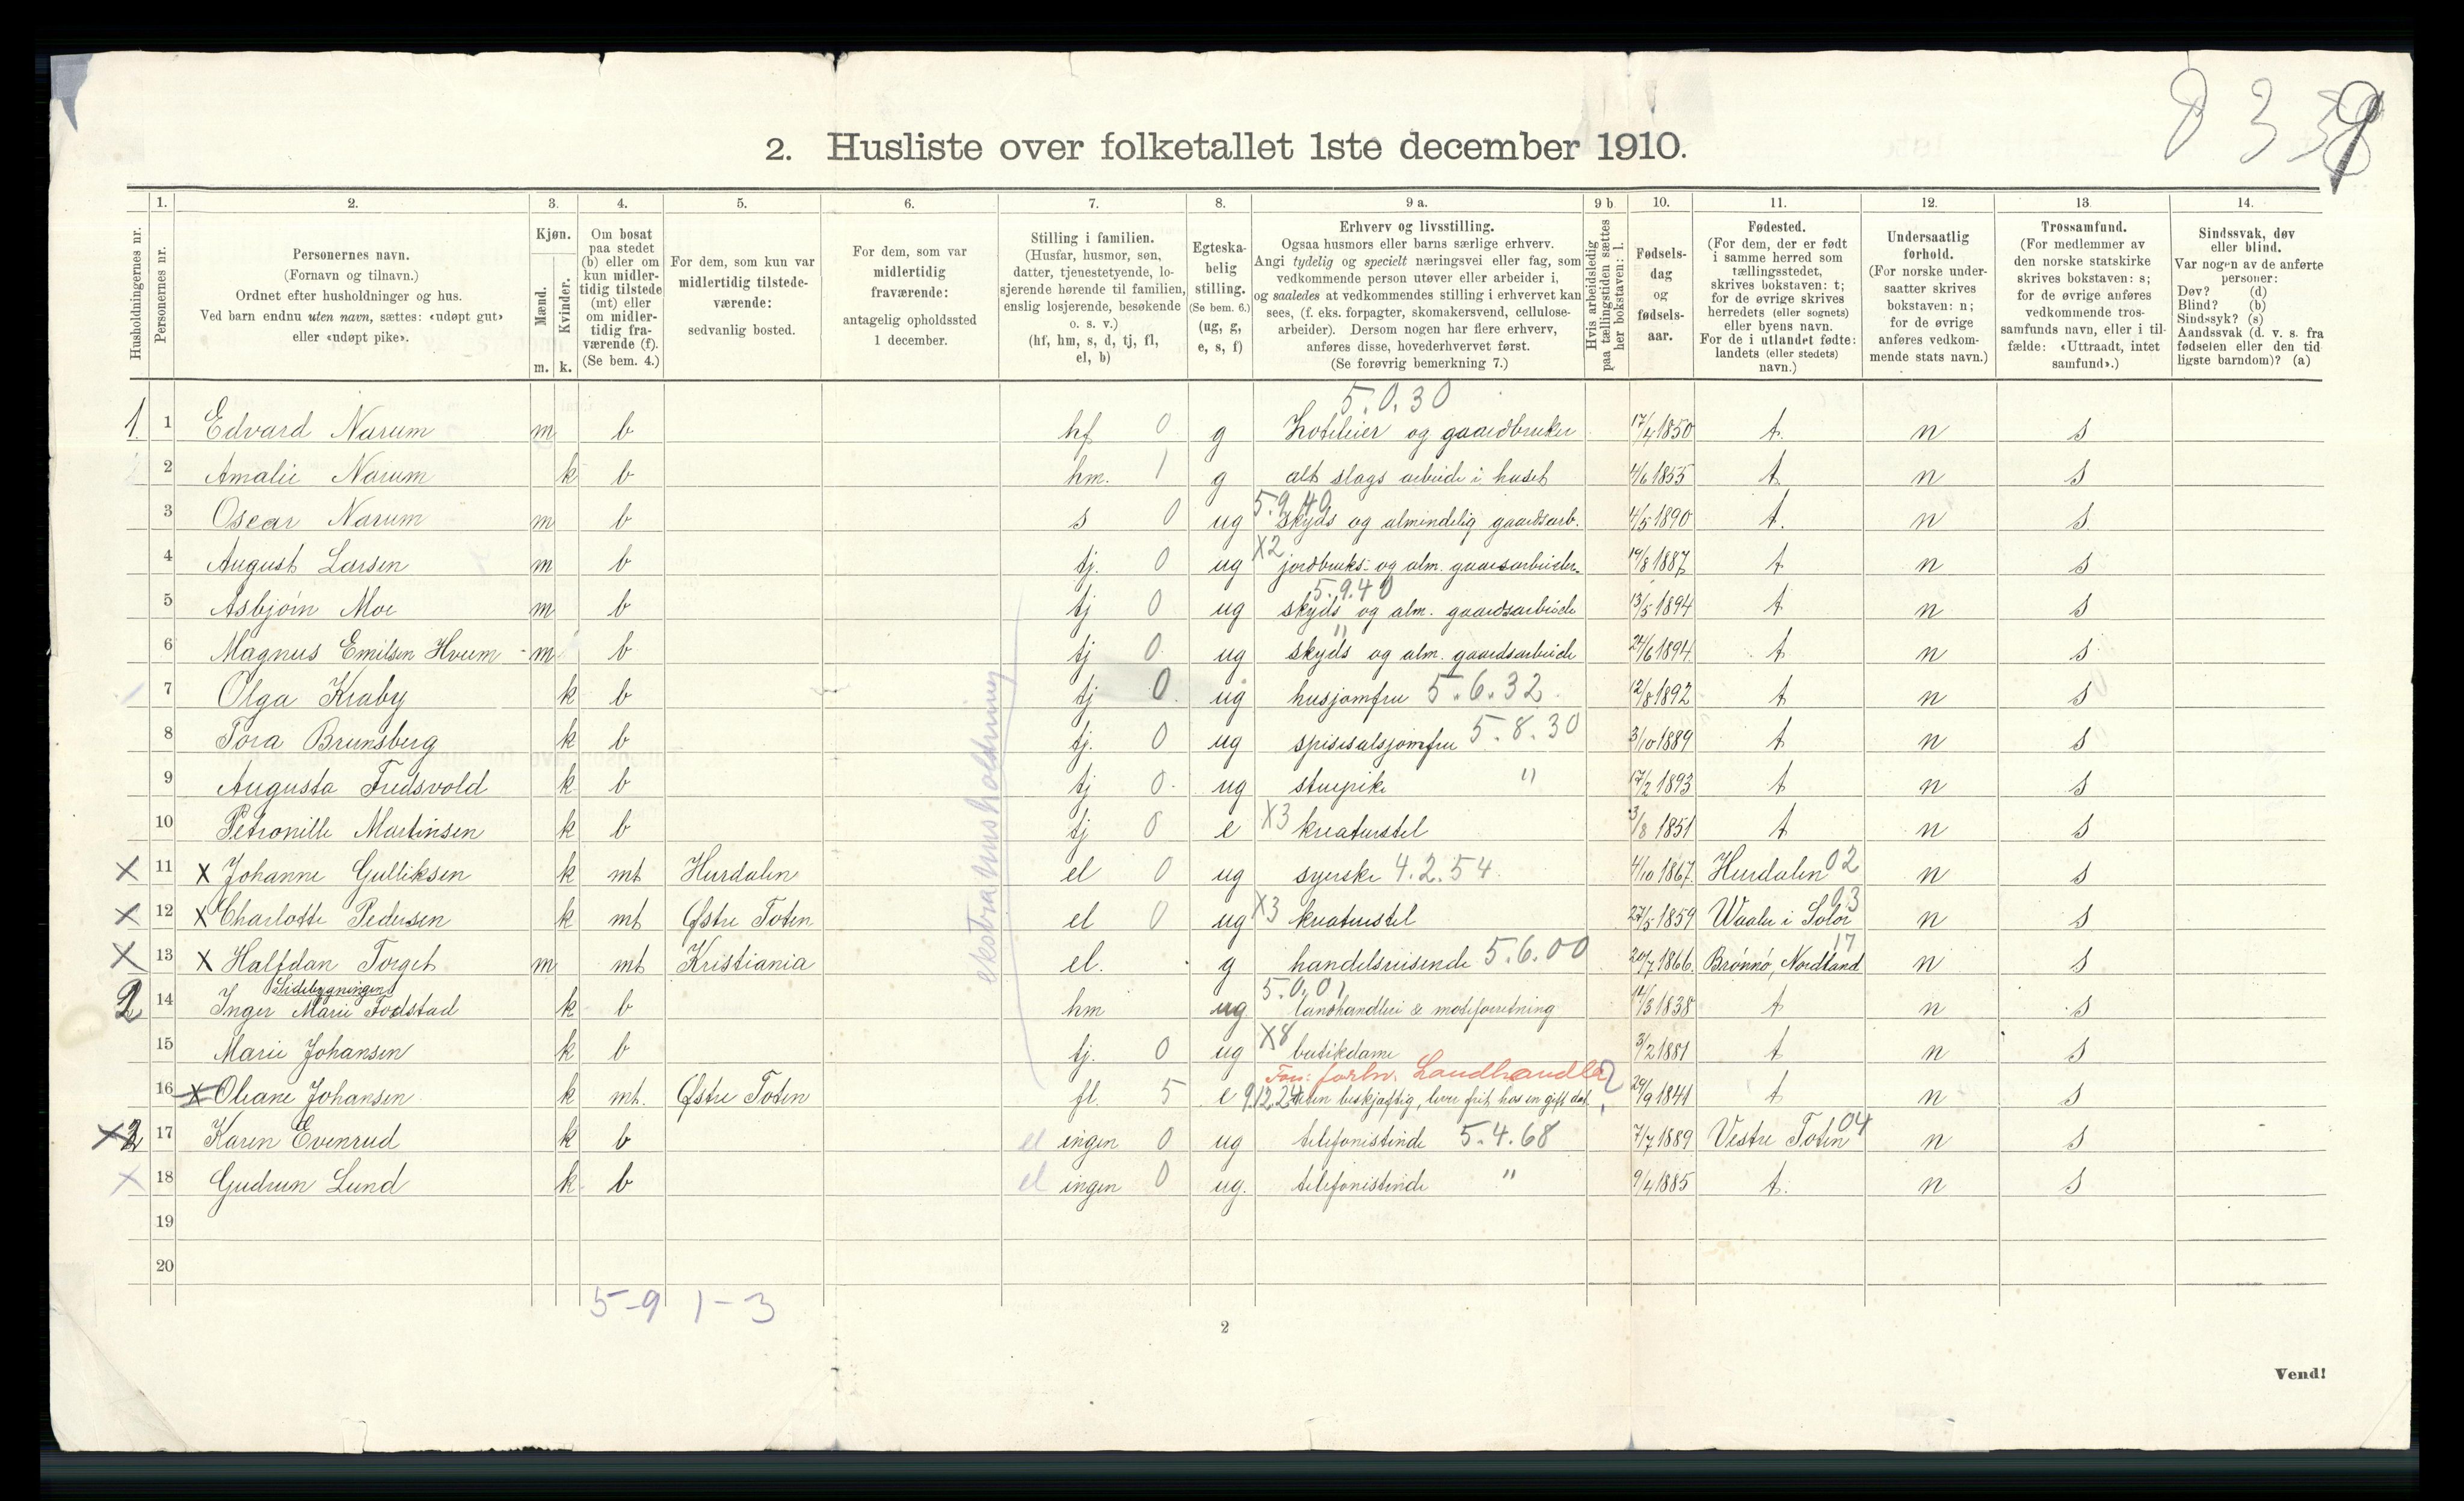 8 3 3 8
2. Husliste over folketallet 1ste december 1910.
1. 2. 3. 4. 5. 6. 7. 8. 9 a. 9 b 10. 11. 12. 13 14.
Husholdningernes nr.
Personernes nr.
Personernes navn.
(Fornavn og tilnavn.)
Ordnet efter husholdninger og hus.
Ved barn endnu uten navn, sættes: «udøpt gut»
eller «udøpt pike».
Kjøn.
Mænd.
Kvinder.
m. k.
Om bosat
paa stedet
(b) eller om
kun midler-
tidig tilstede
(mt) eller
om midler-
tidig fra-
værende (f).
(Se bem. 4.)
For dem, som kun var
midlertidig tilstede-
værende:
sedvanlig bosted.
For dem, som var
midlertidig
fraværende:
antagelig opholdssted
1 december.
Stilling i familien.
(Husfar, husmor, søn,
datter, tjenestetyende, lo-
sjerende hørende til familien,
enslig losjerende, besøkende
o. s. v.)
(hf, hm, s, d, tj, fl,
el, b)
Egteska-
belig
stilling.
(Se bem. 6.)
(ug, g,
e, s, f)
Erhverv og livsstilling.
Ogsaa husmors eller barns særlige erhverv.
Angi tydelig og specielt næringsvei eller fag, som
vedkommende person utøver eller arbeider i,
og saaledes at vedkommendes stilling i erhvervet kan
sees, (f. eks. forpagter, skomakersvend, cellulose-
arbeider). Dersom nogen har flere erhverv,
anføres disse, hovederhvervet først.
(Se forøvrig bemerkning 7.)
Hvis arbeidsledig
paa tællingstiden sættes
her bokstaven: l.
Fødsels-
dag
og
fødsels-
aar.
Fødested.
(For dem, der er født
i samme herred som
tællingsstedet,
skrives bokstaven: t;
for de øvrige skrives
herredets (eller sognets)
eller byens navn.
For de i utlandet fødte:
landets (eller stedets)
navn.)
Undersaatlig
forhold.
(For norske under-
saatter skrives
bokstaven: n;
for de øvrige
anføres vedkom-
mende stats navn.)
Trossamfund.
(For medlemmer av
den norske statskirke
skrives bokstaven: s;
for de øvrige anføres
vedkommende tros-
samfunds navn, eller i til-
fælde: «Uttraadt, intet
samfund».)
Sindssvak, døv
eller blind.
Var nogen av de anførte
personer:
Døv? (d)
Blind? (b)
Sindssyk? (s)
Aandssvak (d. v. s. fra
fødselen eller den tid
ligste barndom)? (a)
5.0.30
1. 1 Edvard Narum m b hf 0 g Hoteleier og gaardbruker 17/4 1850 t. n s
2 Amalie Narum k b hm. 1 g alt slags arbeide i huset 4/6 1855 t n s
5.9.40
3 Oscar Narum m b s 0 ug skyds og almindelig gaardsarb. 4/5 1890 t. n s
4 August Larsen m b tj. 0 ug X2 jordbruks- og alm. gaardsarbeider. 19/8 1887 t n s
5.9.40
5 Asbjørn Moe m b tj 0 ug skyds og alm. gaardsarbeide 13/5 1894 t n s
"
6 Magnus Emilsen Hvem m b tj 0 ug skyds og alm. gaardsarbeide 24/6 1894 t n s
7 Olga Kraby k b tj 0 ug husjomfru 5.6.32 12/8 1892 t n s
8 Tora Brunsberg k b tj. 0 ug spisesalsjomfru 5.8.30 3/10 1889 t n s
9 Augusta Fredsvold k b tj 0 ug stuepike " 17/2 1893 t n s
10 Petronille Martinsen k b tj 0 e X3 kreaturstel 3/8 1851 t n s
X 11 X Johanne Gulliksen k mt Hurdalen el 0 ug syerske 4.2.54 4/10 1867. Hurdalen 02 n s
X 12 X Charlotte Pedersen k mt Østre Toten el 0 ug X3 kreaturstel 27/5 1859 Waaler i Solør 03 n s
X 13 X Halfdan Torget m mt Kristiania el. g handelsreisende 5.6.00 20/7 1866. Brønnø, Nordland 17 n s
Sidebygningen
5.0.01
2 14 Inger Marie Fodstad k b hm ug landhandleri & moteforretning 14/3 1838 t n s
15 Marie Johansen k b tj. 0 ug X8 butikdame 3/2 1881 t n s
Fors: forhv. Landhandler ?
16 X Oleane Johansen k mt. Østre Toten fl. 5 e 9.12.24 uten beskjæftig, lever frit hos en gift dat. 29/9 1841 t n s
X 3 17 Karen Evenrud k b el ingen 0 ug telefonistinde 5.4.68 7/7 1889 Vestre Toten 04 n s
X 18 Gudrun Lund k b el ingen 0 ug. telefonistinde " 9/4 1885 t. n s
19
20
ekstra husholdning
5-9 1-3
2
Vend!